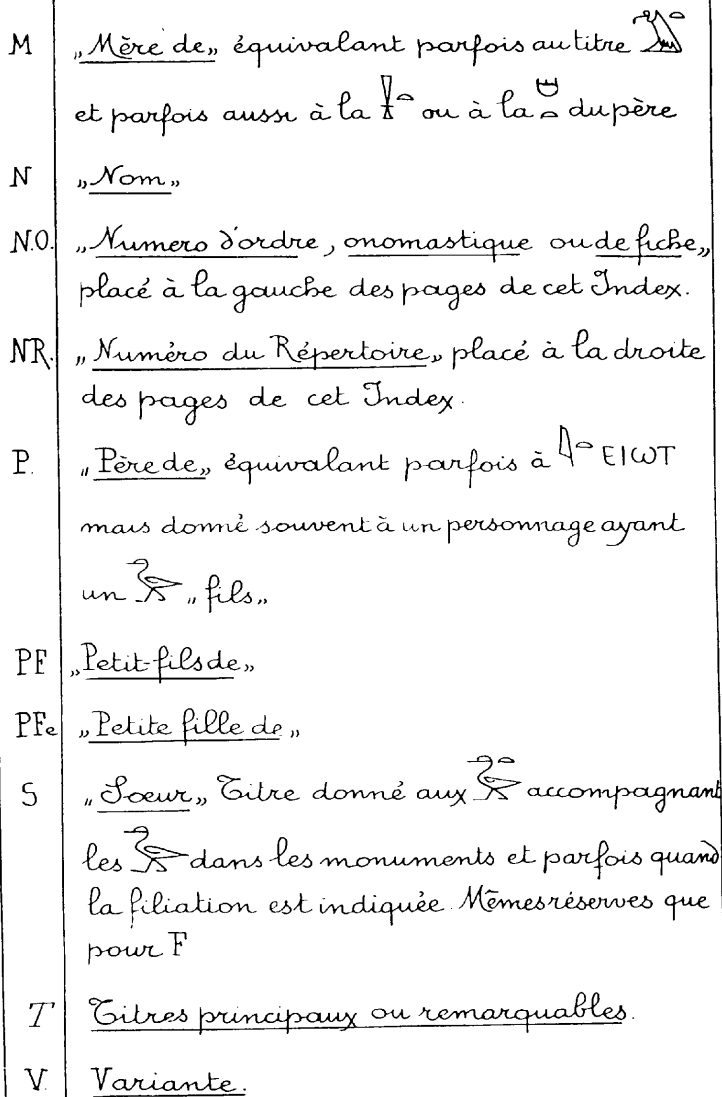 M „Mère de„ équivalant parfois au titre 𓅐𓏏
et parfois aussi à la 𓍛𓏏 ou à la 𓎟𓏏 du père
N „Nom„
N.O. „Numero d'ordre, onomastique ou de fiche„
placé à la gauche des pages de cet Index.
NR. „Numéro du Répertoire„ placé à la droite
des pages de cet Index.
P. „Père de„ équivalant parfois à 𓇋𓏏 ⲈⲒⲰⲦ
mais donné souvent à un personnage ayant
un „fils„
PF „Petit-fils de„
PFe „Petite fille de„
S „Soeur„ Titre donné aux accompagnant
les dans les monuments et parfois quand
la filiation est indiquée. Mêmes réserves que
pour F
T Titres principaux ou remarquables.
V. Variante.